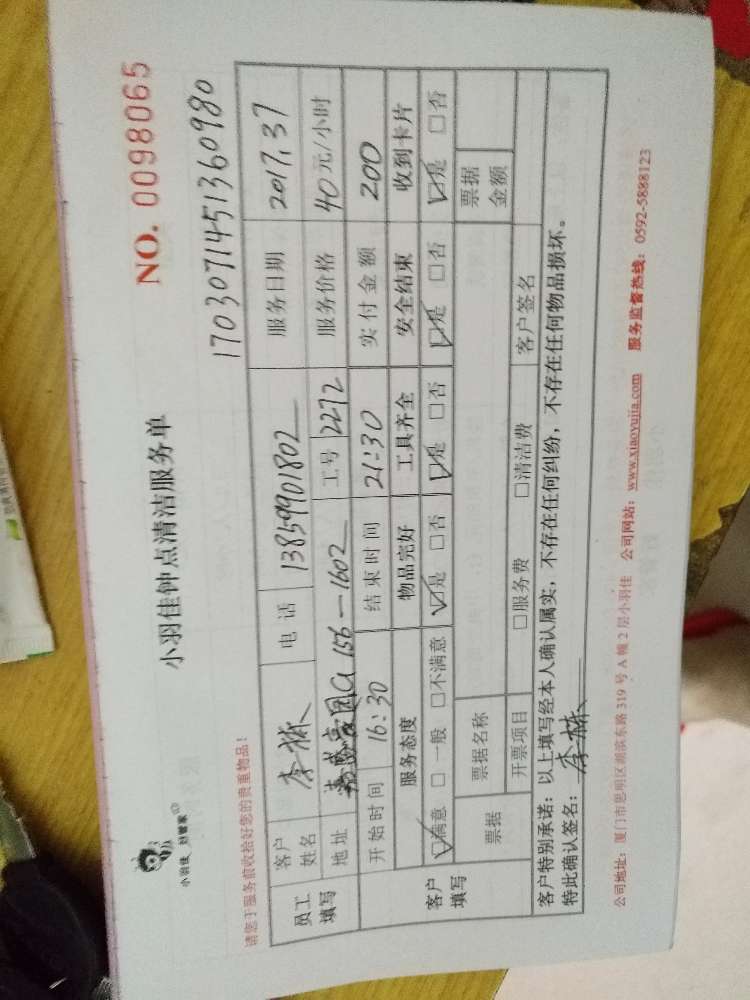 小羽佳 好管家
小羽佳钟点清洁服务单
NO. 0098065
请您于服务前收拾好您的贵重物品!
1703071451360980
员工填写 客户姓名 李栋 电话 13859901802 服务日期 2017.37
地址 156-1602 工号 2272 服务价格 40元/小时
开始时间 16:30 结束时间 21:30 实付金额 200
客户填写 服务态度 物品完好 工具齐全 安全结束 收到卡片
☑满意 □一般 □不满意 ☑是 □否 ☑是 □否 ☑是 □否 ☑是 □否
票据 票据名称 票据金额
开票项目 □服务费 □清洁费 客户签名
客户特别承诺:以上填写经本人确认属实,不存在任何纠纷,不存在任何物品损坏。
特此确认签名:李栋
公司地址:厦门市思明区湖滨东路319号A幢2层小羽佳 公司网站:www.xiaoyujia.com 服务监督热线:0592-5888123